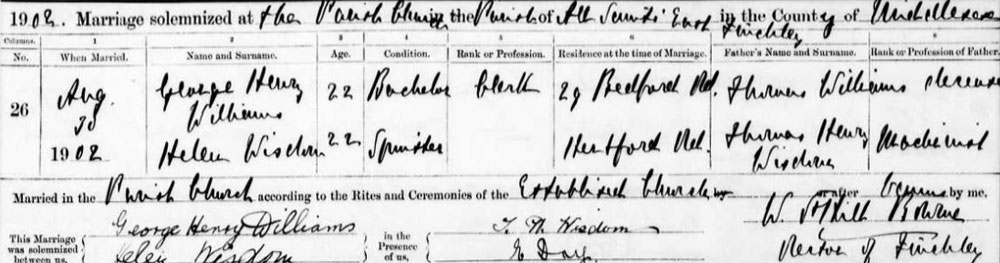 1902. Marriage solemnized at the Parish Church in the Parish of All Saints East Finchley in the County of Middlesex
Columns. 1 2 3 4 5 6 7 8
No. When Married. Name and Surname. Age. Condition. Rank or Profession. Residence at the time of Marriage. Father's Name and Surname. Rank or Profession of Father.
26 Aug. 30 1902 George Henry Williams 22 Bachelor Clerk 29 Bedford Rd. Thomas Williams deceased
Helen Wisdom 22 Spinster Hertford Rd. Thomas Henry Wisdom Machinist
Married in the Parish Church according to the Rites and Ceremonies of the Established Church by or after Banns by me,
This Marriage was solemnized between us, George Henry Williams Helen Wisdom in the Presence of us, T. H. Wisdom E Day
Rector of Finchley